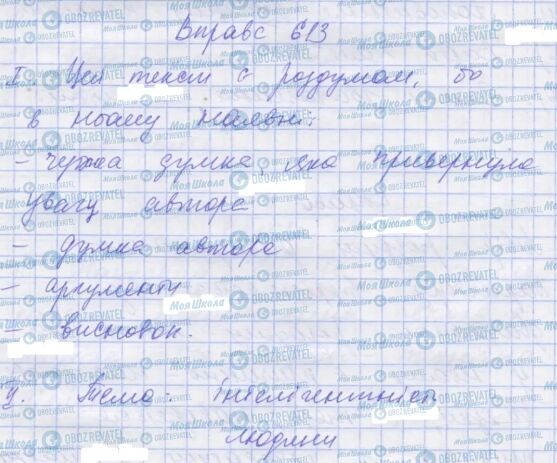 Вправа 613
I. Цей текст є роздумом, бо
в ньому наявні:
– чужа думка, яка привернула
увагу автора
– думка автора
– аргументи
висновок.
II. Тема: інтелігентність
людини